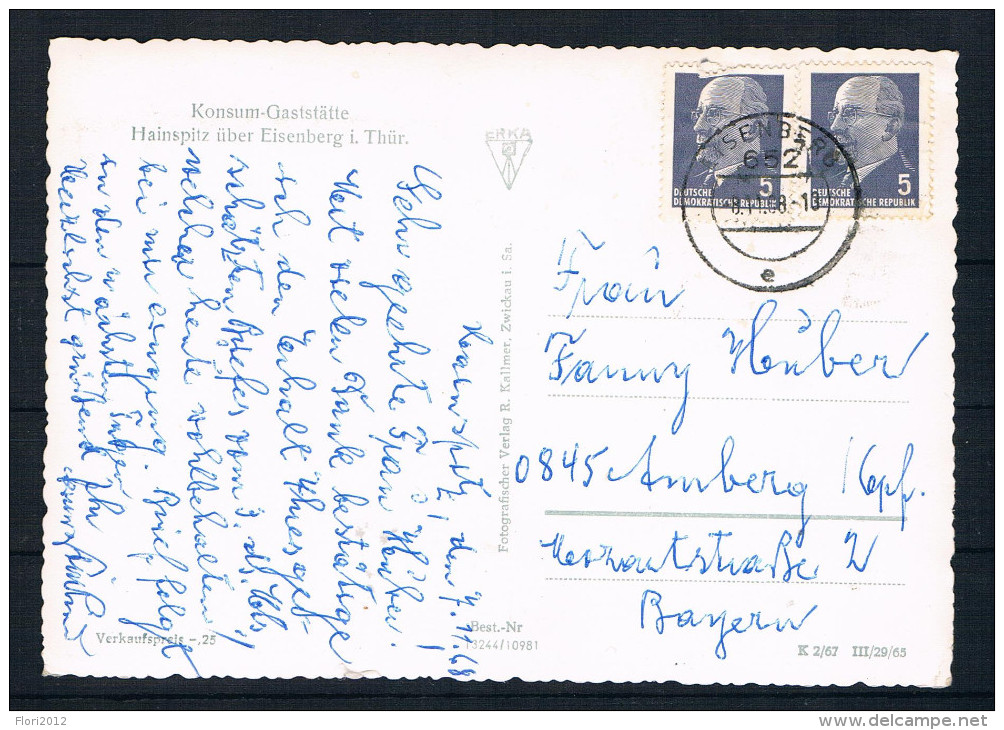 Konsum-Gaststätte
Hainspitz über Eisenberg i. Thür.
ERKA
DEUTSCHE
DEMOKRATISCHE REPUBLIK
5
DEUTSCHE
DEMOKRATISCHE REPUBLIK
5
EISENBERG
652
e
Hainspitz, den 7.11.68
Sehr geehrte Frau Hüber!
Mit vielen Dank bestätige
ich den Erhalt Ihres ge-
schätzten Briefes vom 3. ds. Mts,
welcher heute wohlbehalten
bei mir einging. Brief folgt
in den nächsten Tagen.
Herzlichst grüßend Ihr
Fotografischer Verlag R. Kallmer, Zwickau i. Sa.
Frau
Fanny Hüber
0845 Amberg /Opf.
Mozartstraße 2
Bayern
Verkaufspreis -,25
Best.-Nr
13244/10981
K 2/67 III/29/65
Flori2012